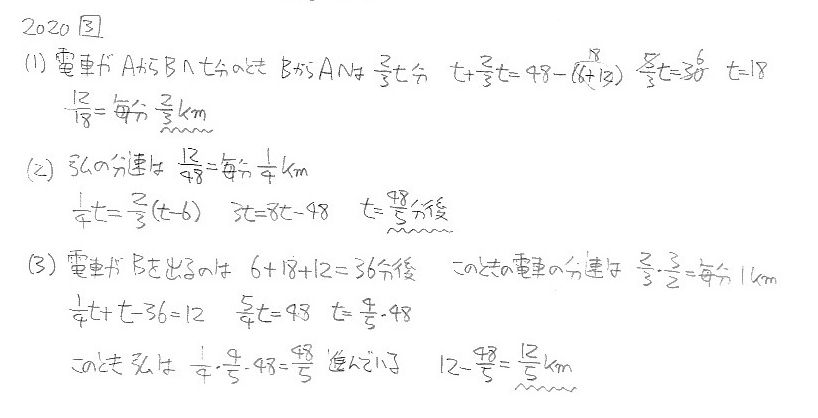 2020 ③
(1) 電車がAからBへt分のとき BからAへは 2/3t分 t+2/3t=48-(6+12) 18 5/3t=30 6 t=18
12/18=毎分 2/3km
(2) 弘の分速は 12/48=毎分 1/4km
1/4t=2/3(t-6) 3t=8t-48 t=48/5分後
(3) 電車がBを出るのは 6+18+12=36分後 このときの電車の分速は 2/3・3/2=毎分1km
1/4t+t-36=12 5/4t=48 t=4/5・48
このとき弘は 1/4・4/5・48=48/5 進んでいる 12-48/5=12/5km